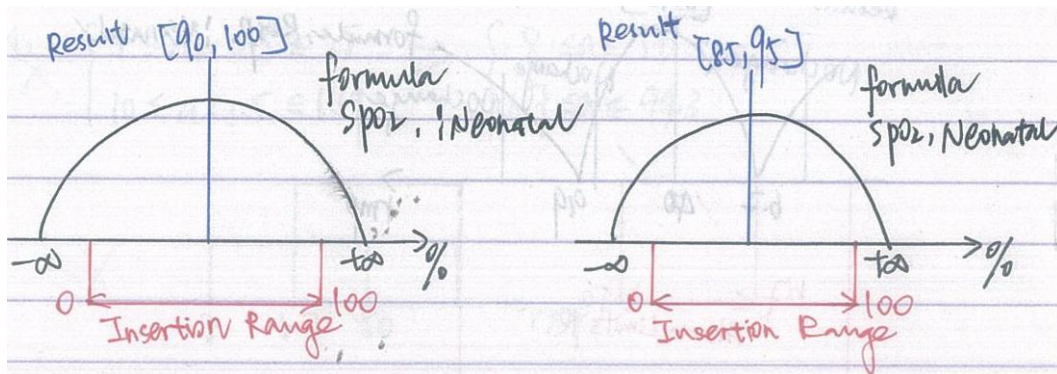 Result [90,100]
formula
SpO2, !Neonatal
-∞
+∞
%
0
100
Insertion Range
Result [85,95]
formula
SpO2, Neonatal
-∞
+∞
%
0
100
Insertion Range